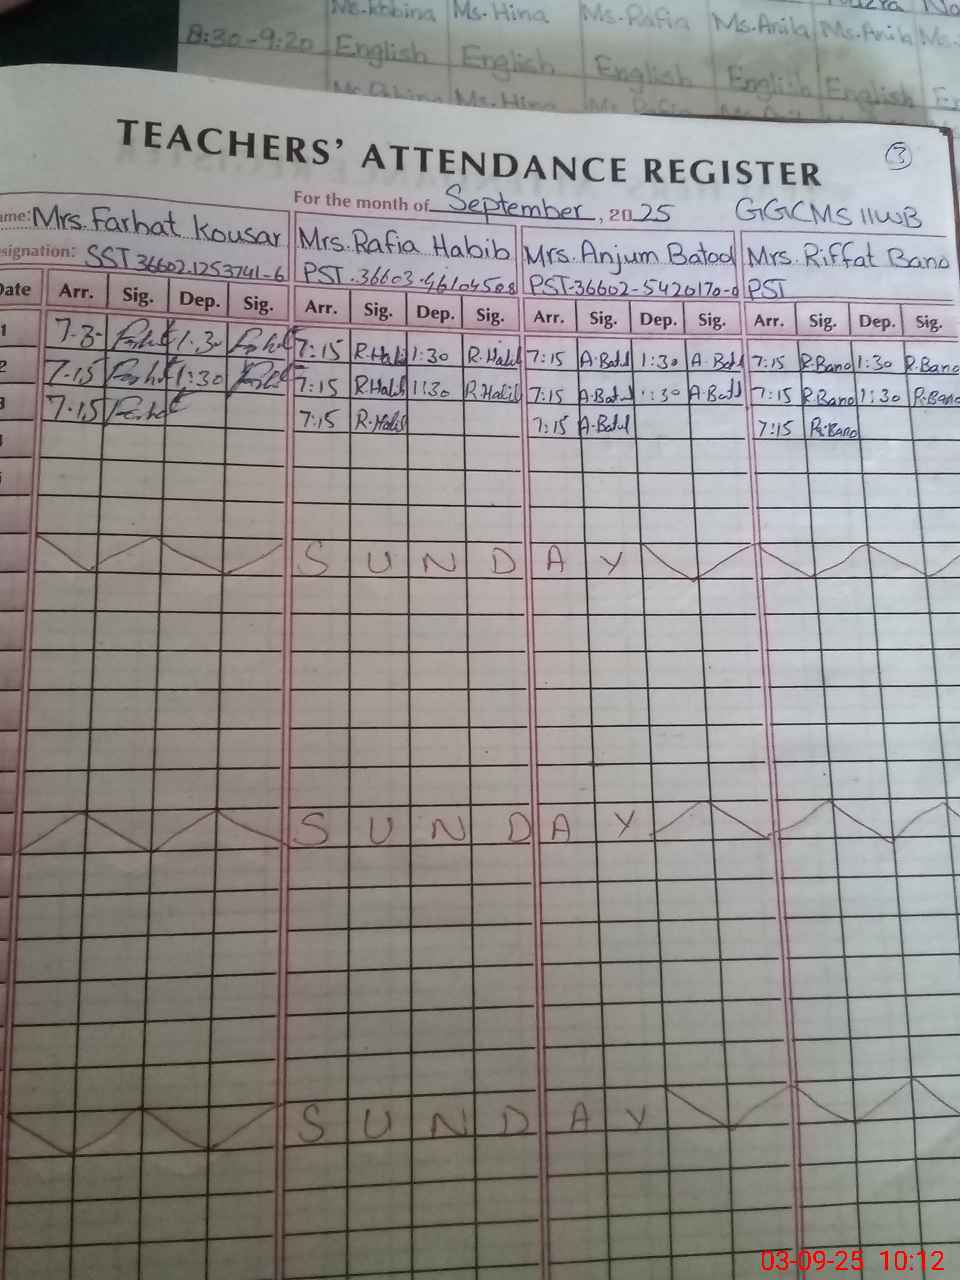 Ms. Robina Ms. Hina Ms. Rafia Ms. Anila Ms. Anila Ms.
8:30-9:20 English English English English English
Ms. Hina Ms. Rafia
TEACHERS' ATTENDANCE REGISTER 3
For the month of September, 2025 GGCMS 11WB
Mrs. Farhat Kousar Mrs. Rafia Habib Mrs. Anjum Batool Mrs. Riffat Bano
signation: SST 36602-1253741-6 PST-36603-4610450-8 PST-36602-5420170-0 PST
Date Arr. Sig. Dep. Sig. Arr. Sig. Dep. Sig. Arr. Sig. Dep. Sig. Arr. Sig. Dep. Sig.
1 7-3- 1-30 7:15 R.Habib 1:30 R.Habib 7:15 A.Batul 1:30 A.Batul 7:15 R.Bano 1:30 R.Bano
2 7-15 1:30 7:15 R.Habib 1:30 R.Habib 7:15 A.Batul 1:30 A.Batul 7:15 R.Bano 1:30 R.Bano
3 7-15 7:15 R.Habib 7:15 A.Batul 7:15 R.Bano
SUNDAY
SUNDAY
SUNDAY
03-09-25 10:12